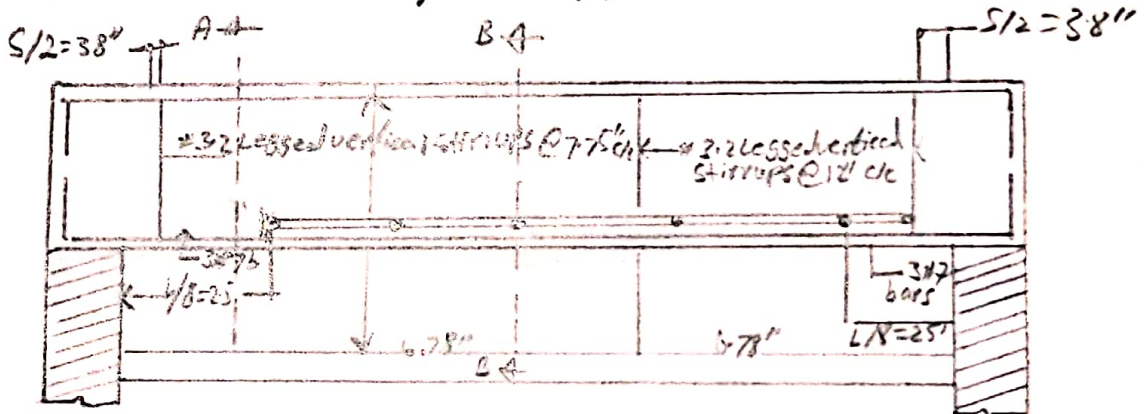 S/2=38"
A
B
S/2 = 3.8"
#3.2 Legged vertical stirrups @ 7.75" c/c
#3.2 Legged vertical
stirrups @ 12" c/c
3#7
bars
L/8=25
L/8=25'
6.78"
B